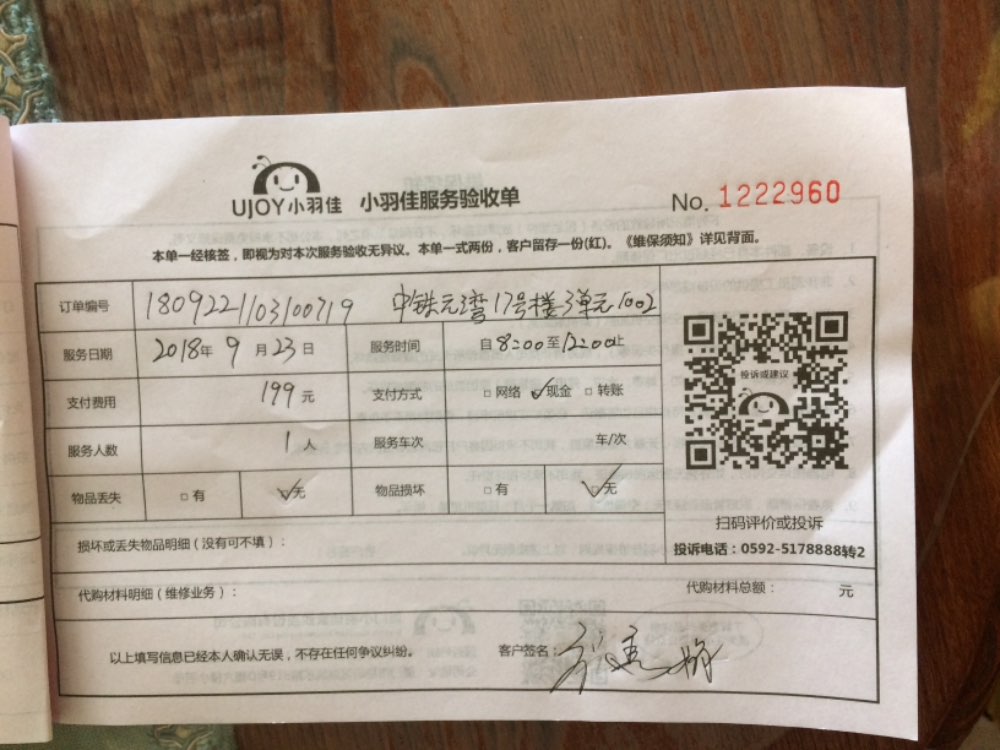 UJOY小羽佳 小羽佳服务验收单 No. 1222960
本单一经核签，即视为对本次服务验收无异议。本单一式两份，客户留存一份(红)。《维保须知》详见背面。
订单编号 1809221103100719 中铁元湾17号楼3单元1002
服务日期 2018年9月23日 服务时间 自8:00至12:00止
支付费用 199元 支付方式 □网络 ☑现金 □转账
投诉或建议
服务人数 1人 服务车次 车/次
物品丢失 □有 ☑无 物品损坏 □有 ☑无
扫码评价或投诉
损坏或丢失物品明细（没有可不填）：
投诉电话：0592-5178888转2
代购材料明细（维修业务）： 代购材料总额： 元
以上填写信息已经本人确认无误，不存在任何争议纠纷。 客户签名：